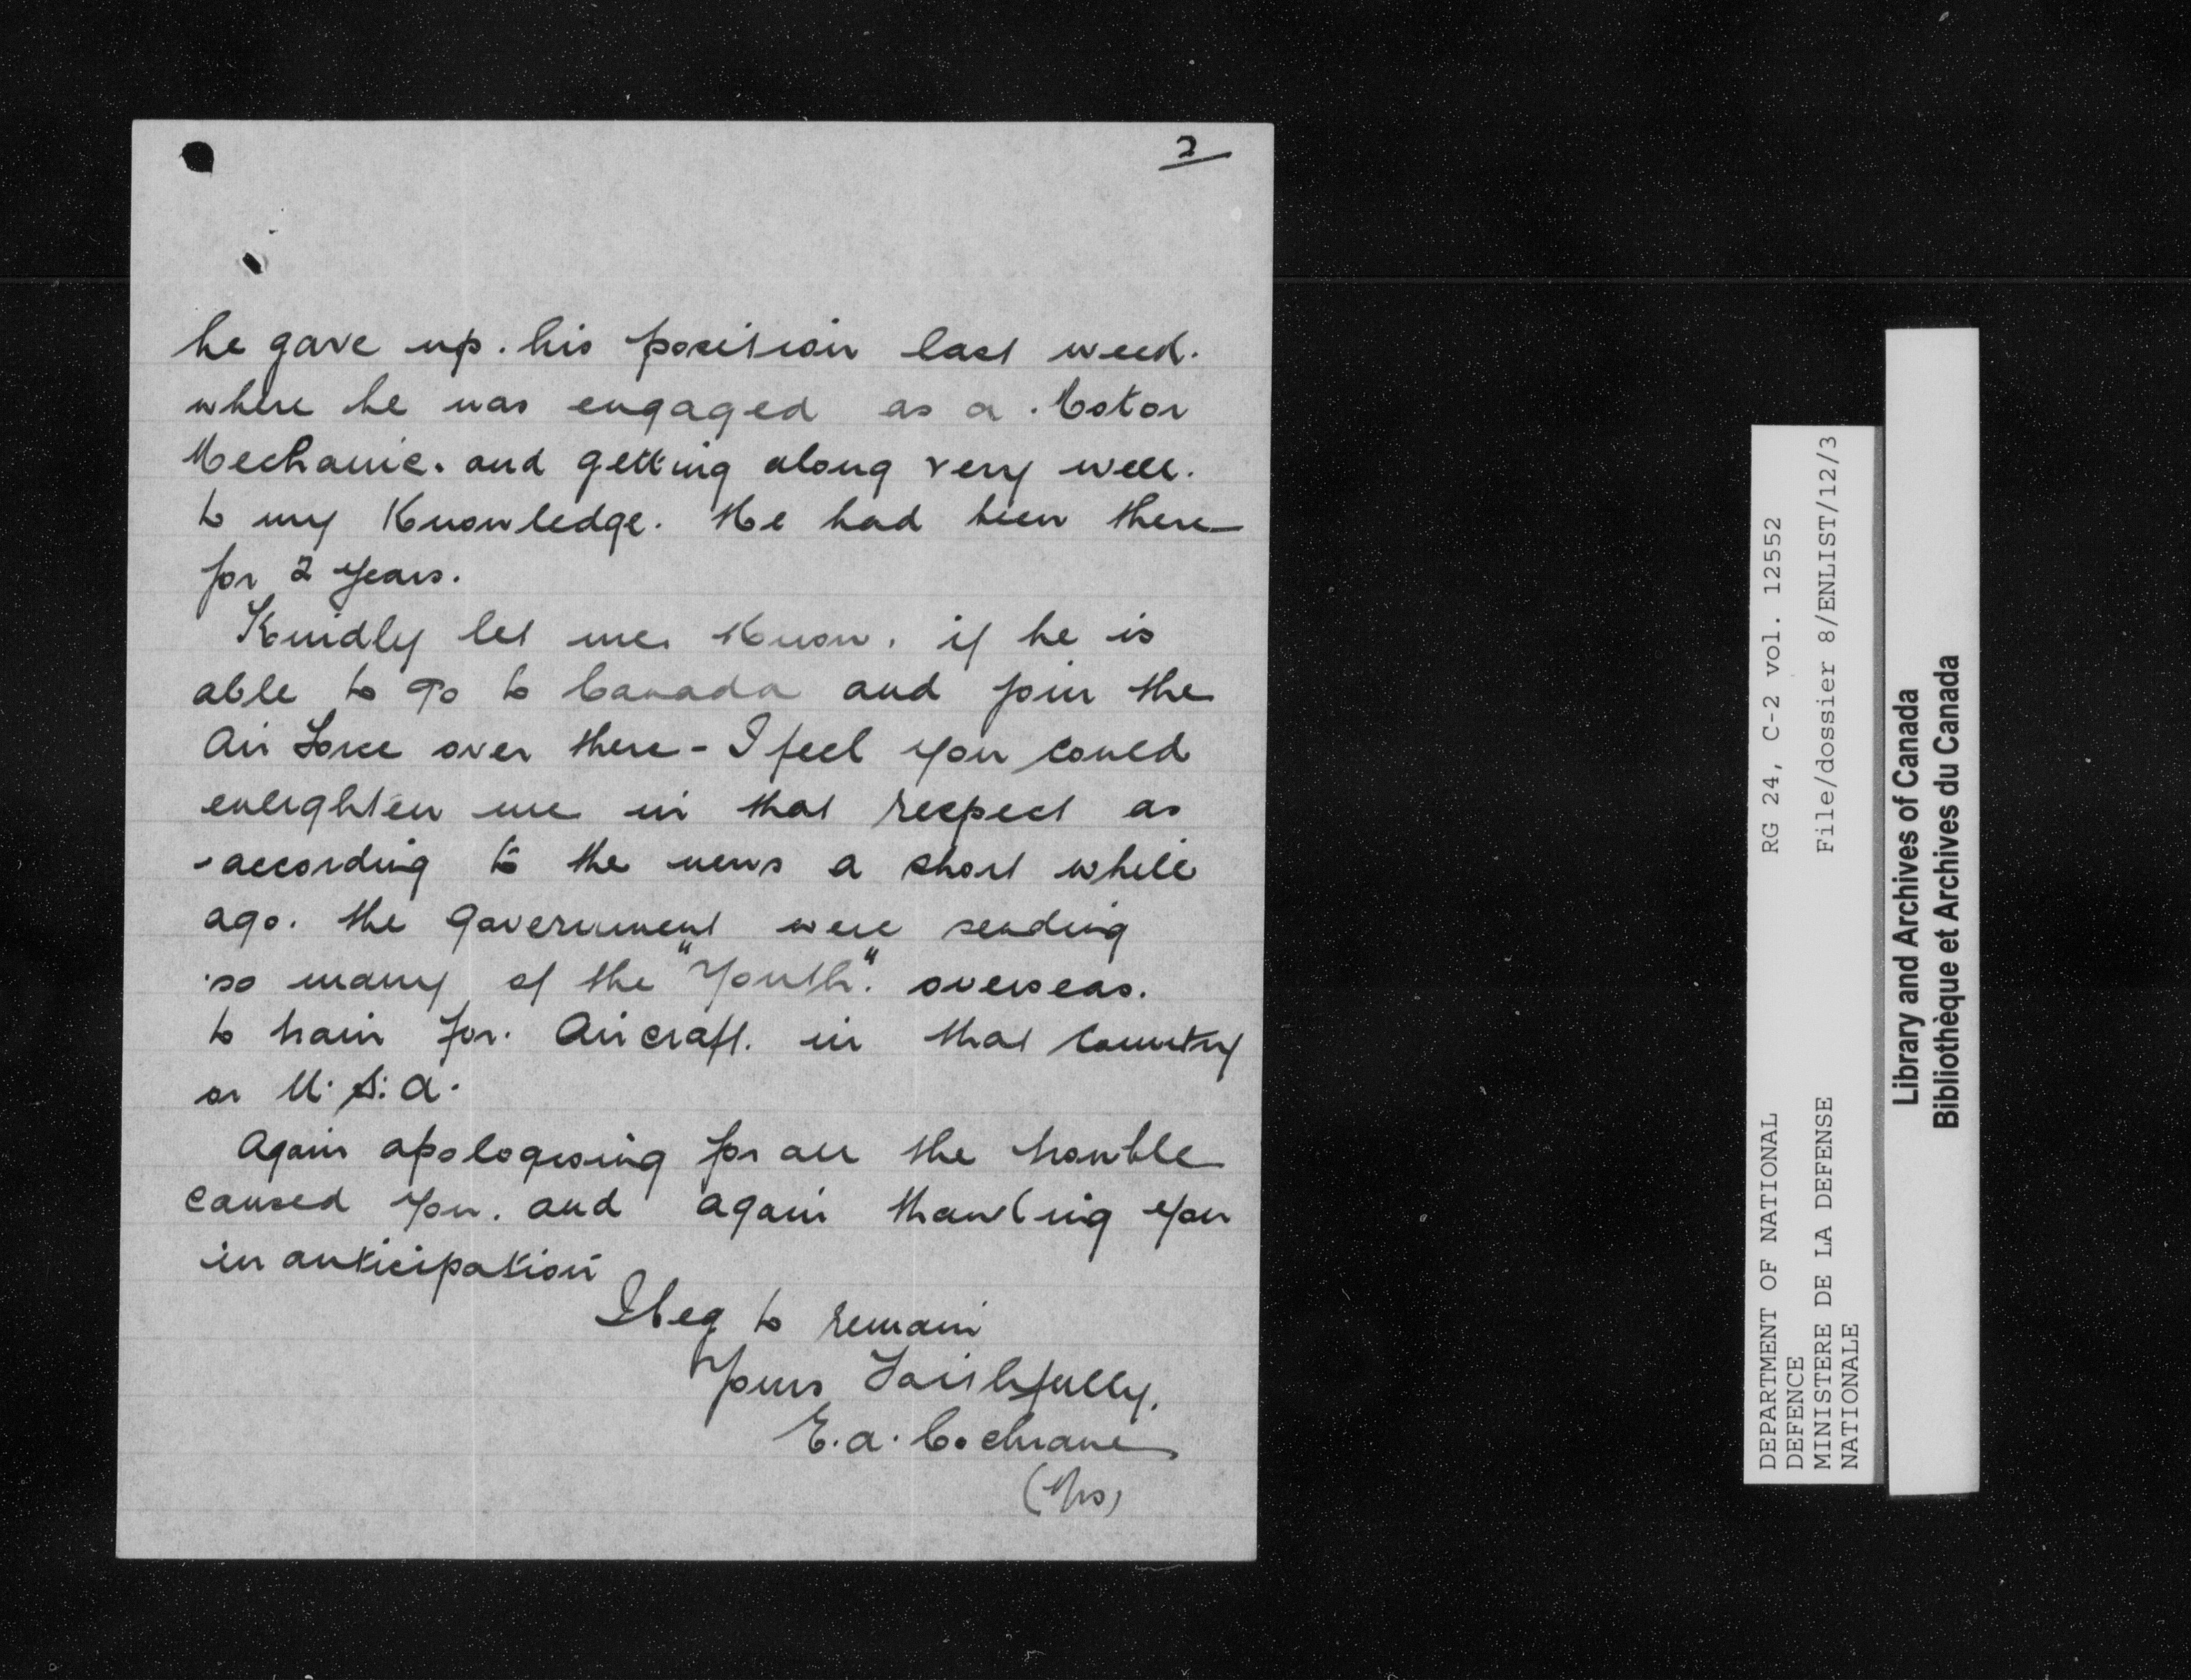 2
he gave up. his position last week.
where he was engaged as a. Motor
Mechanic. and getting along very well.
to my Knowledge. He had been there
for 2 years.
Kindly let me. Know. if he is
able to go to Canada and join the
Air Force over there - I feel you could
enlighten me in that respect as
according to the news a short while
ago. the Government were sending
so many of the "Youth". overseas.
to train for. Aircraft. in that Country
or U.S.A.
Again apologising for all the trouble
caused you. and again thanking you
in anticipation
I beg to remain
Yours Faithfully,
E.A. Cochrane
(Mrs)
DEPARTMENT OF NATIONAL
DEFENCE
MINISTERE DE LA DEFENSE
NATIONALE
RG 24, C-2 vol. 12552
File/dossier 8/ENLIST/12/3
Library and Archives of Canada
Bibliothèque et Archives du Canada